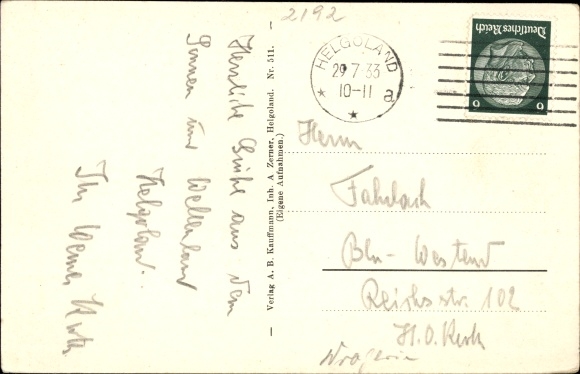 2192
HELGOLAND
29 7 33
10-11 a
Deutsches Reich
6 6
Herrn
Fahrbach
Bln-Westend
Reichsstr. 102
H.O. Kerk
Drogerie
Verlag A. B. Kauffmann, Inh. A Zerner, Helgoland. Nr. 511.
(Eigene Aufnahmen.)
Herzliche Grüße aus dem
Sonnen und Wellenland
Helgoland.
Ihr Werner